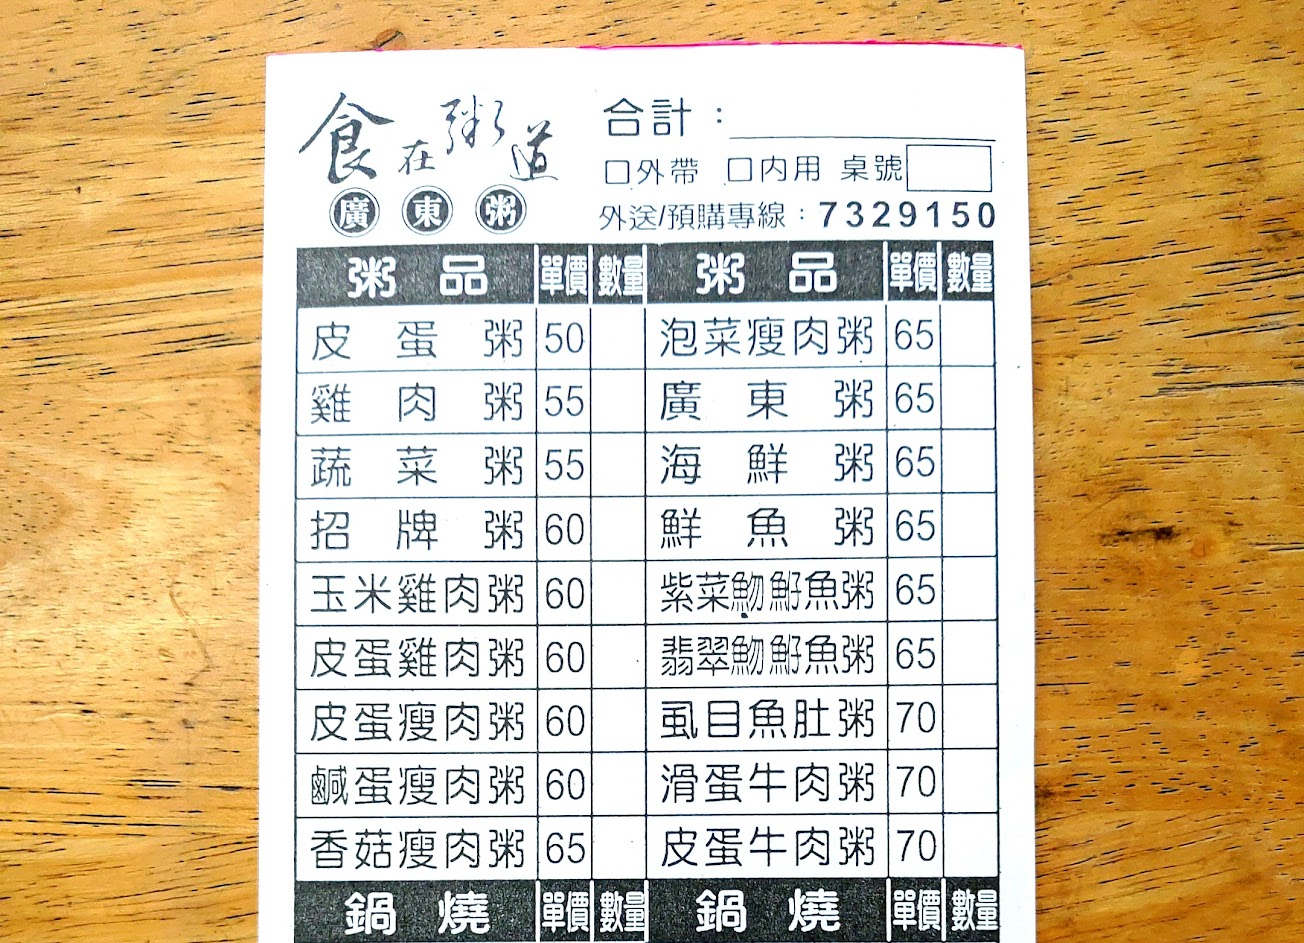 食在粥道
廣東粥
合計：
口外帶 口內用 桌號
外送/預購專線：7329150
粥品 單價 數量 粥品 單價 數量
皮蛋粥 50 泡菜瘦肉粥 65
雞肉粥 55 廣東粥 65
蔬菜粥 55 海鮮粥 65
招牌粥 60 鮮魚粥 65
玉米雞肉粥 60 紫菜魩䱔魚粥 65
皮蛋雞肉粥 60 翡翠魩䱔魚粥 65
皮蛋瘦肉粥 60 虱目魚肚粥 70
鹹蛋瘦肉粥 60 滑蛋牛肉粥 70
香菇瘦肉粥 65 皮蛋牛肉粥 70
鍋燒 單價 數量 鍋燒 單價 數量